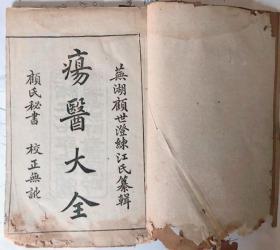 蕪湖顧世澄練江氏纂輯
瘍醫大全
顏氏秘書 校正無訛